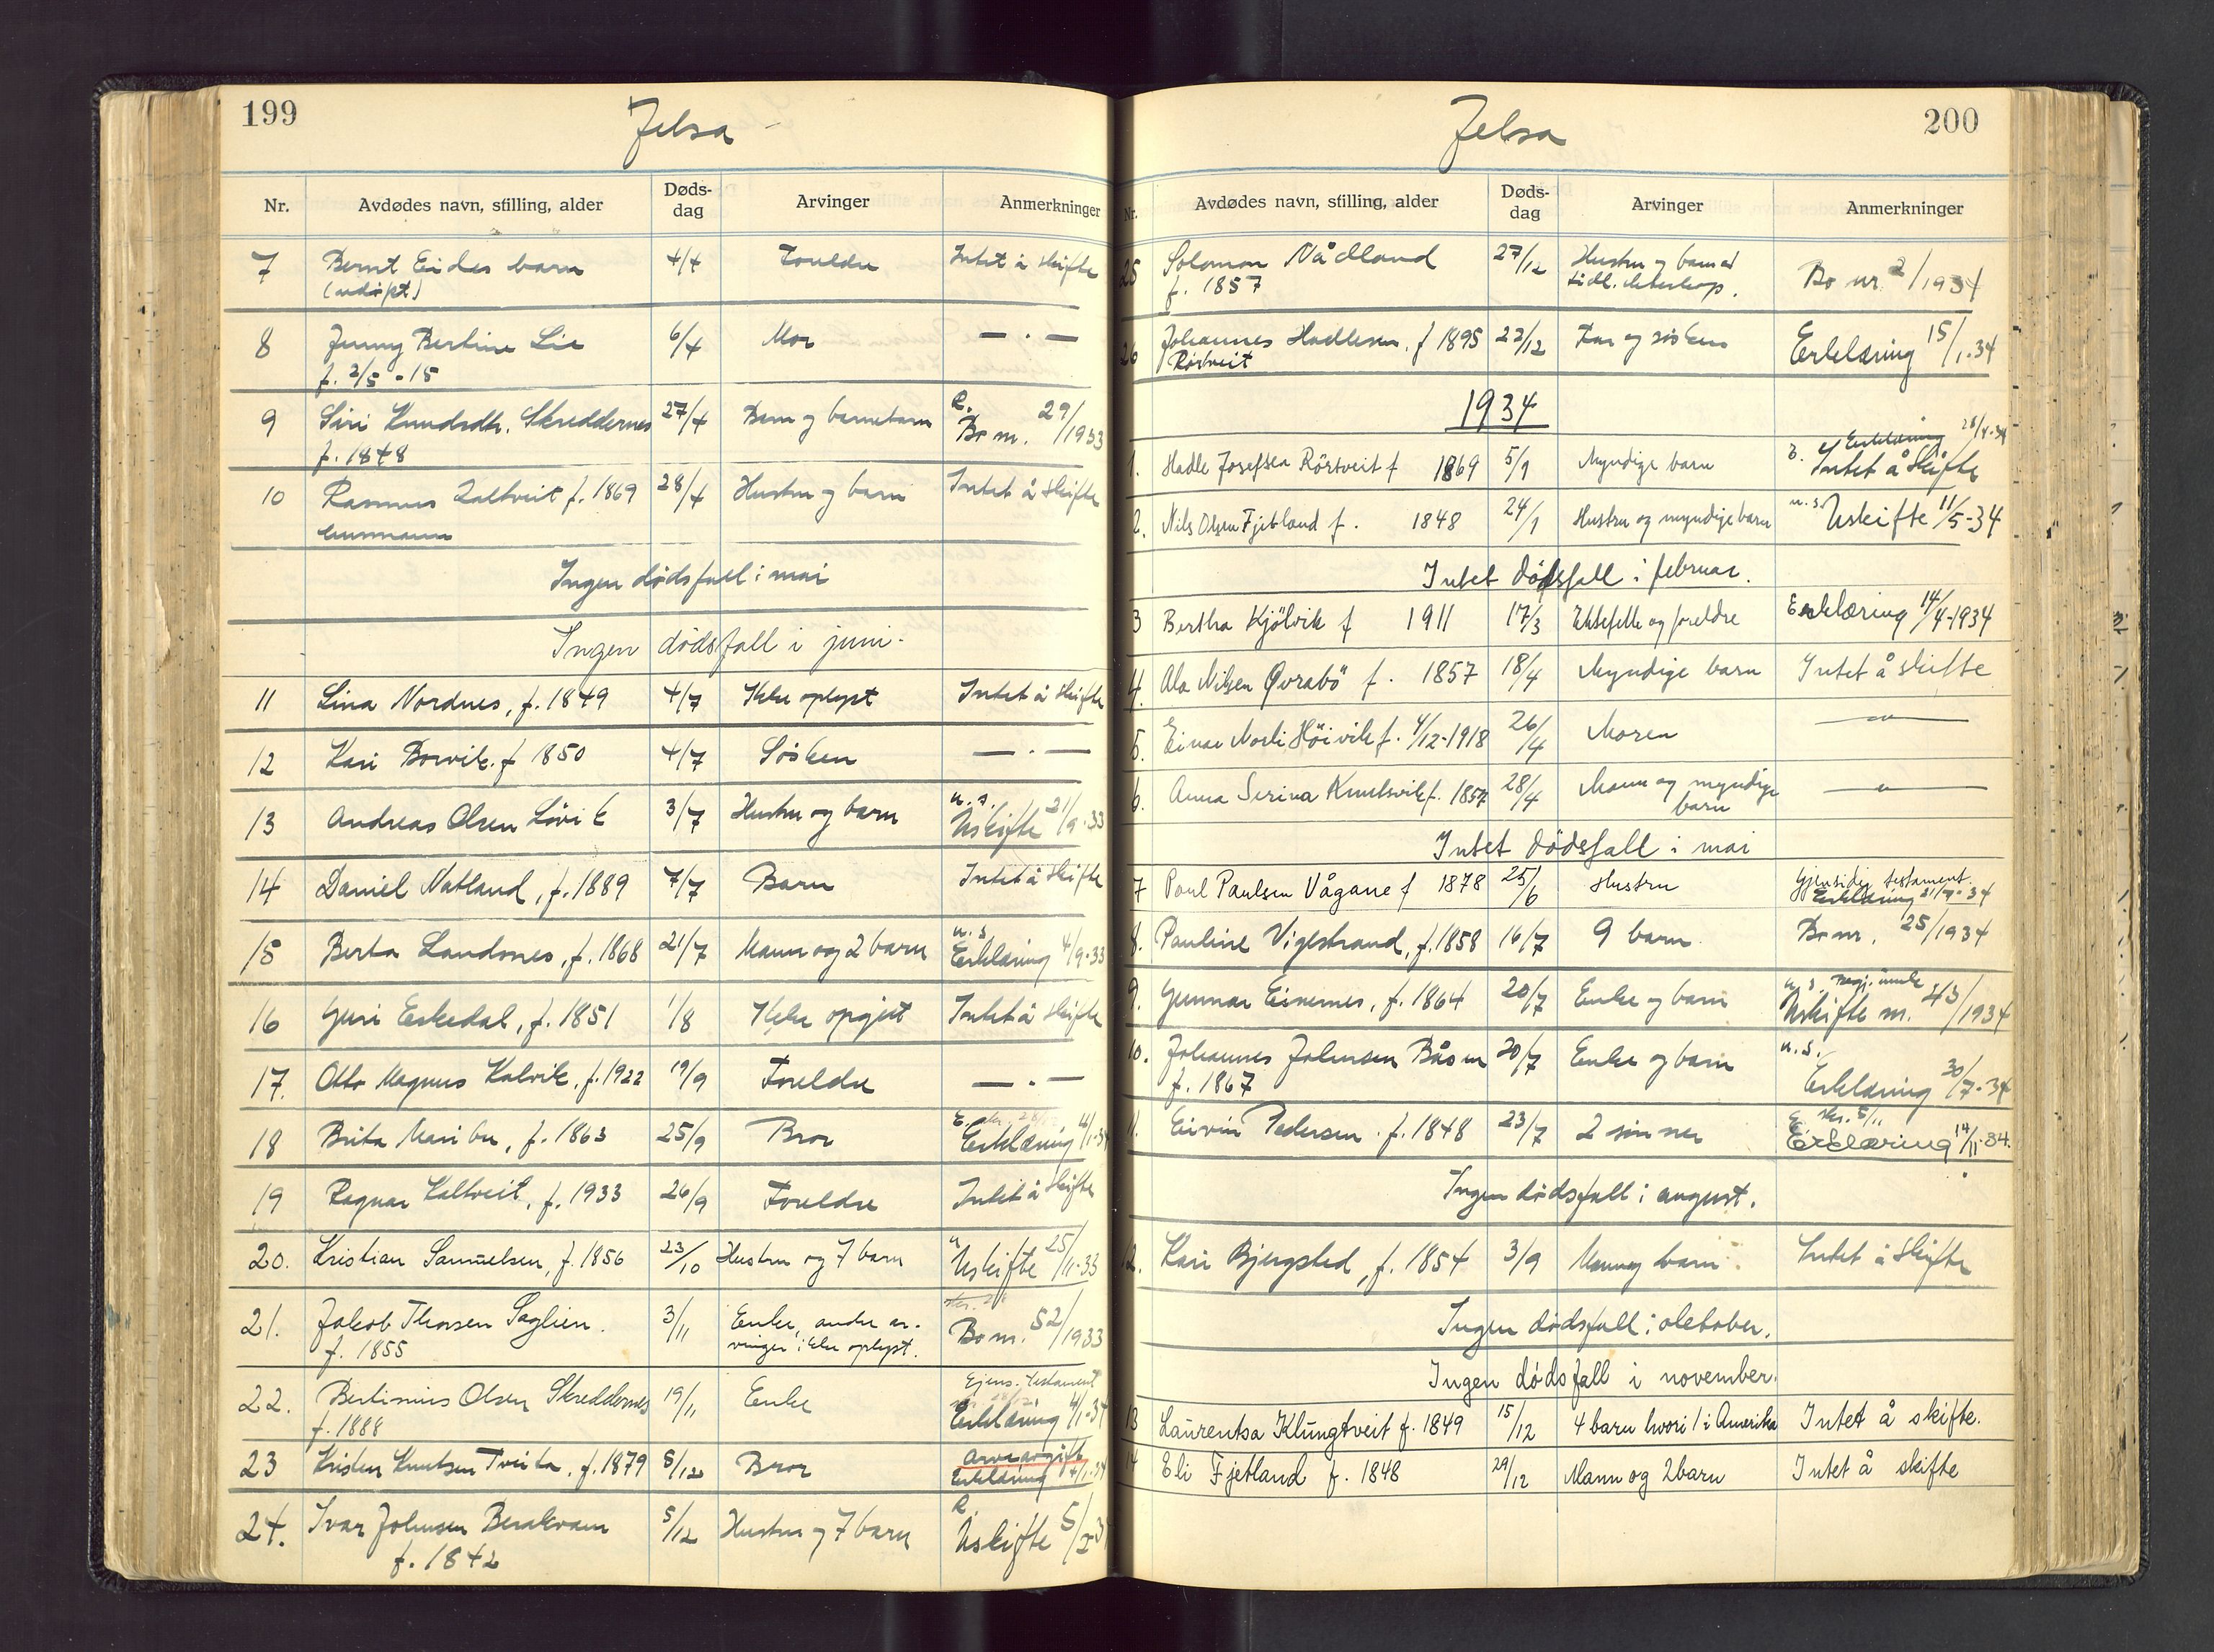 199
Jelsa
Nr. Avdødes navn, stilling, alder Døds-dag Arvinger Anmerkninger
7 Bernt Eides barn 4/4 Foreldre Intet å skifte
(udøpt)
8 Jenny Bertine Lie 6/4 Mor — · —
f. 2/5 - 15
9 Siri Knudsdtr. Skreddernes 27/4 Barn og barnebarn R. Bo nr. 29/1933
f. 1848
10 Rasmus Kaltveit f. 1869 28/4 Hustru og barn Intet å skifte
Ingen dødsfall i mai
Ingen dødsfall i juni.
11 Lina Nordnes, f. 1849 4/7 Ikke oplyst Intet å skifte
12 Kari Borvik. f 1850 4/7 Søsken — · —
13 Andreas Olsen Løvik 3/7 Hustru og barn u. s. Uskifte 21/9-33
14 Daniel Natland, f. 1889 7/7 Barn Intet å skifte
15 Berta Landsnes, f. 1868 21/7 Mann og 2 barn u. s. Erklæring 4/9-33
16 Guri Eskedal, f. 1851 1/8 Ikke opgitt Intet å skifte
17. Otto Magnus Kalvik, f. 1922 19/9 Foreldre — · —
18 Brita Maribu, f. 1863 25/9 Bror Erklæring
19 Ragnar Kaltveit, f. 1933 26/9 Foreldre Intet å skifte
20. Kristian Samuelsen, f. 1856 23/10 Hustru og 7 barn u. Uskifte 25/11-33
21. Jakob Thorsen Saglien. 3/11 Enke, andre ar- Bo nr. 52/1933
f. 1855 vinger ikke oplyst.
22. Bertinius Olsen Skreddernes 19/11 Enke Gjens. testament
f. 1888 Erklæring 4/1-34
23 Kristen Knutsen Tveita, f. 1879 5/12 Bror Arveavgift
Erklæring 4/1-34
24. Ivar Johnsen Berakvam 5/12 Hustru og 7 barn R. Uskifte
f. 1842
200
Jelsa
Nr. Avdødes navn, stilling, alder Døds-dag Arvinger Anmerkninger
25 Solomon Nådland 27/12 Hustru og barn av Bo nr. 2/1934
f. 1857 tidl. ekteskap.
26 Johannes Hadlesen, f 1895 23/12 Far og søsken Erklæring 15/1-34
Røstveit
1934
1. Hadle Josefsen Rörtveit f 1869 5/1 Myndige barn Erklæring 28/4-34
Intet å skifte
2. Nils Olsen Fjetland f. 1848 24/1 Hustru og myndige barn u. s. Uskifte 11/5-34
Intet dødsfall i februar.
3 Bertha Kjölvik f 1911 17/3 Ektefelle og foreldre Erklæring 14/4-1934
4. Ola Nilsen Øvrabö f. 1857 18/4 Myndige barn Intet å skifte
5. Einar Norli Höivik f. 4/12-1918 26/4 Moren — " —
6. Anna Serina Knutsvik f. 1857 28/4 Mann og myndige — " —
barn
Intet dødsfall i mai
7 Poul Paulsen Vågane f 1878 25/6 Hustru Gjensidig testament.
Erklæring 21/7-34
8. Pauline Vigestrand, f. 1858 16/7 9 barn Bo nr. 25/1934
9. Gunnar Eienes, f. 1864 20/7 Enke og barn Uskifte nr. 43/1934
10. Johannes Johnsen Båsen 20/7 Enke og barn u. s.
f. 1867 Erklæring 30/7-34
11. Eivin Pedersen. f. 1848 23/7 2 sønner E. skr. 5/11
Erklæring 14/11-34.
Ingen dødsfall i august.
12. Kari Bjergsted, f. 1854 3/9 Mann og barn Intet å skifte
Ingen dødsfall i oktober.
Ingen dødsfall i november.
13 Laurentsa Klungtveit f. 1849 15/12 4 barn hvori 1 i Amerika Intet å skifte.
14 Eli Fjetland f. 1848 29/12 Mann og 2 barn Intet å skifte